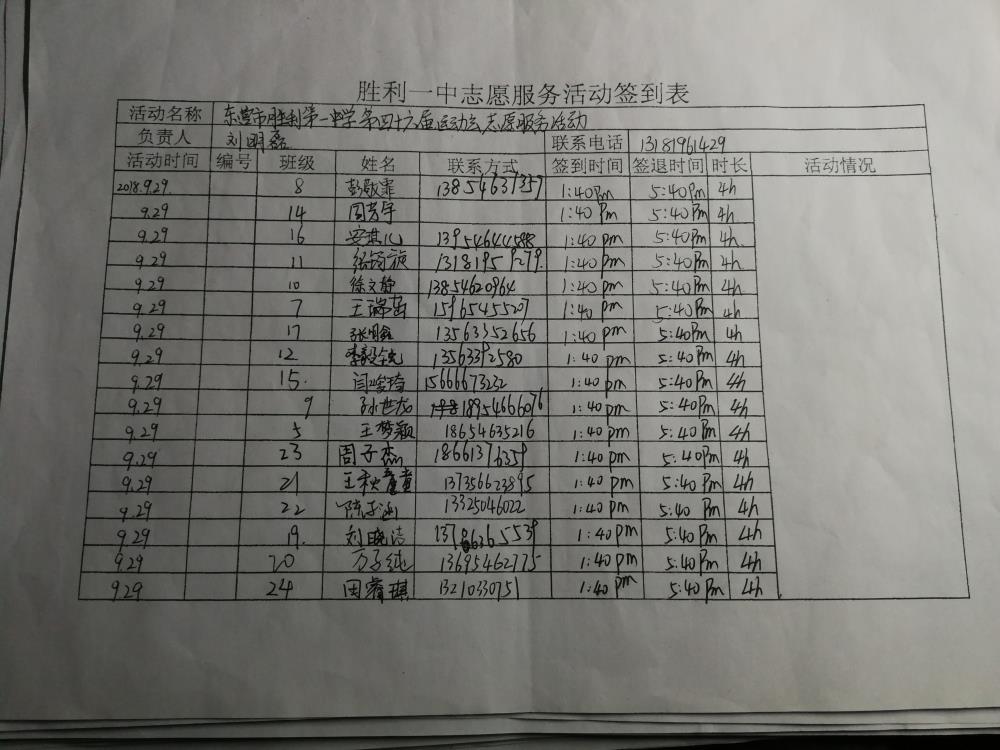 胜利一中志愿服务活动签到表
活动名称 东营市胜利第一中学第四十六届运动会志愿服务活动
负责人 刘明磊 联系电话 13181961429
活动时间 编号 班级 姓名 联系方式 签到时间 签退时间 时长 活动情况
2018.9.29 8 彭敬霏 13854631357 1:40pm 5:40pm 4h
9.29 14 周芳宇 1:40pm 5:40pm 4h
9.29 16 安琪儿 13954644588 1:40pm 5:40pm 4h
9.29 11 1:40pm 5:40pm 4h
9.29 10 徐文静 13854620964 1:40pm 5:40pm 4h
9.29 7 王瑞茁 15965455207 1:40pm 5:40pm 4h
9.29 17 张明鑫 13563352656 1:40pm 5:40pm 4h
9.29 12 13563392580 1:40pm 5:40pm 4h
9.29 15. 闫峻琦 15666673232 1:40pm 5:40pm 4h
9.29 9 孙世龙 18954666076 1:40pm 5:40pm 4h
9.29 5 王梦颖 18654635216 1:40pm 5:40pm 4h
9.29 23 周子杰 18661376359 1:40pm 5:40pm 4h
9.29 21 137356623895 1:40pm 5:40pm 4h
9.29 22 陈子涵 13325046022 1:40pm 5:40pm 4h
9.29 19. 刘晓洁 1:40pm 5:40pm 4h
9.29 20 万子纯 13695462775 1:40pm 5:40pm 4h
9.29 24 田睿琪 13210330751 1:40pm 5:40pm 4h